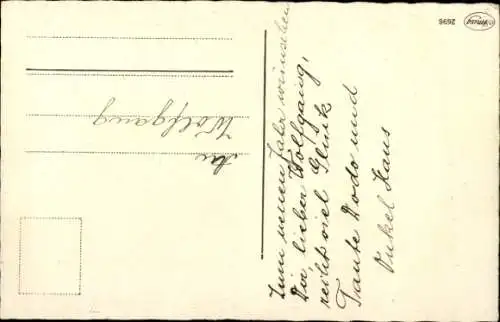 Zum neuen Jahr wünschen
Dir lieber Wolfgang,
recht viel Glück
Tante Dodo und
Onkel Hans
An
Wolfgang
2696